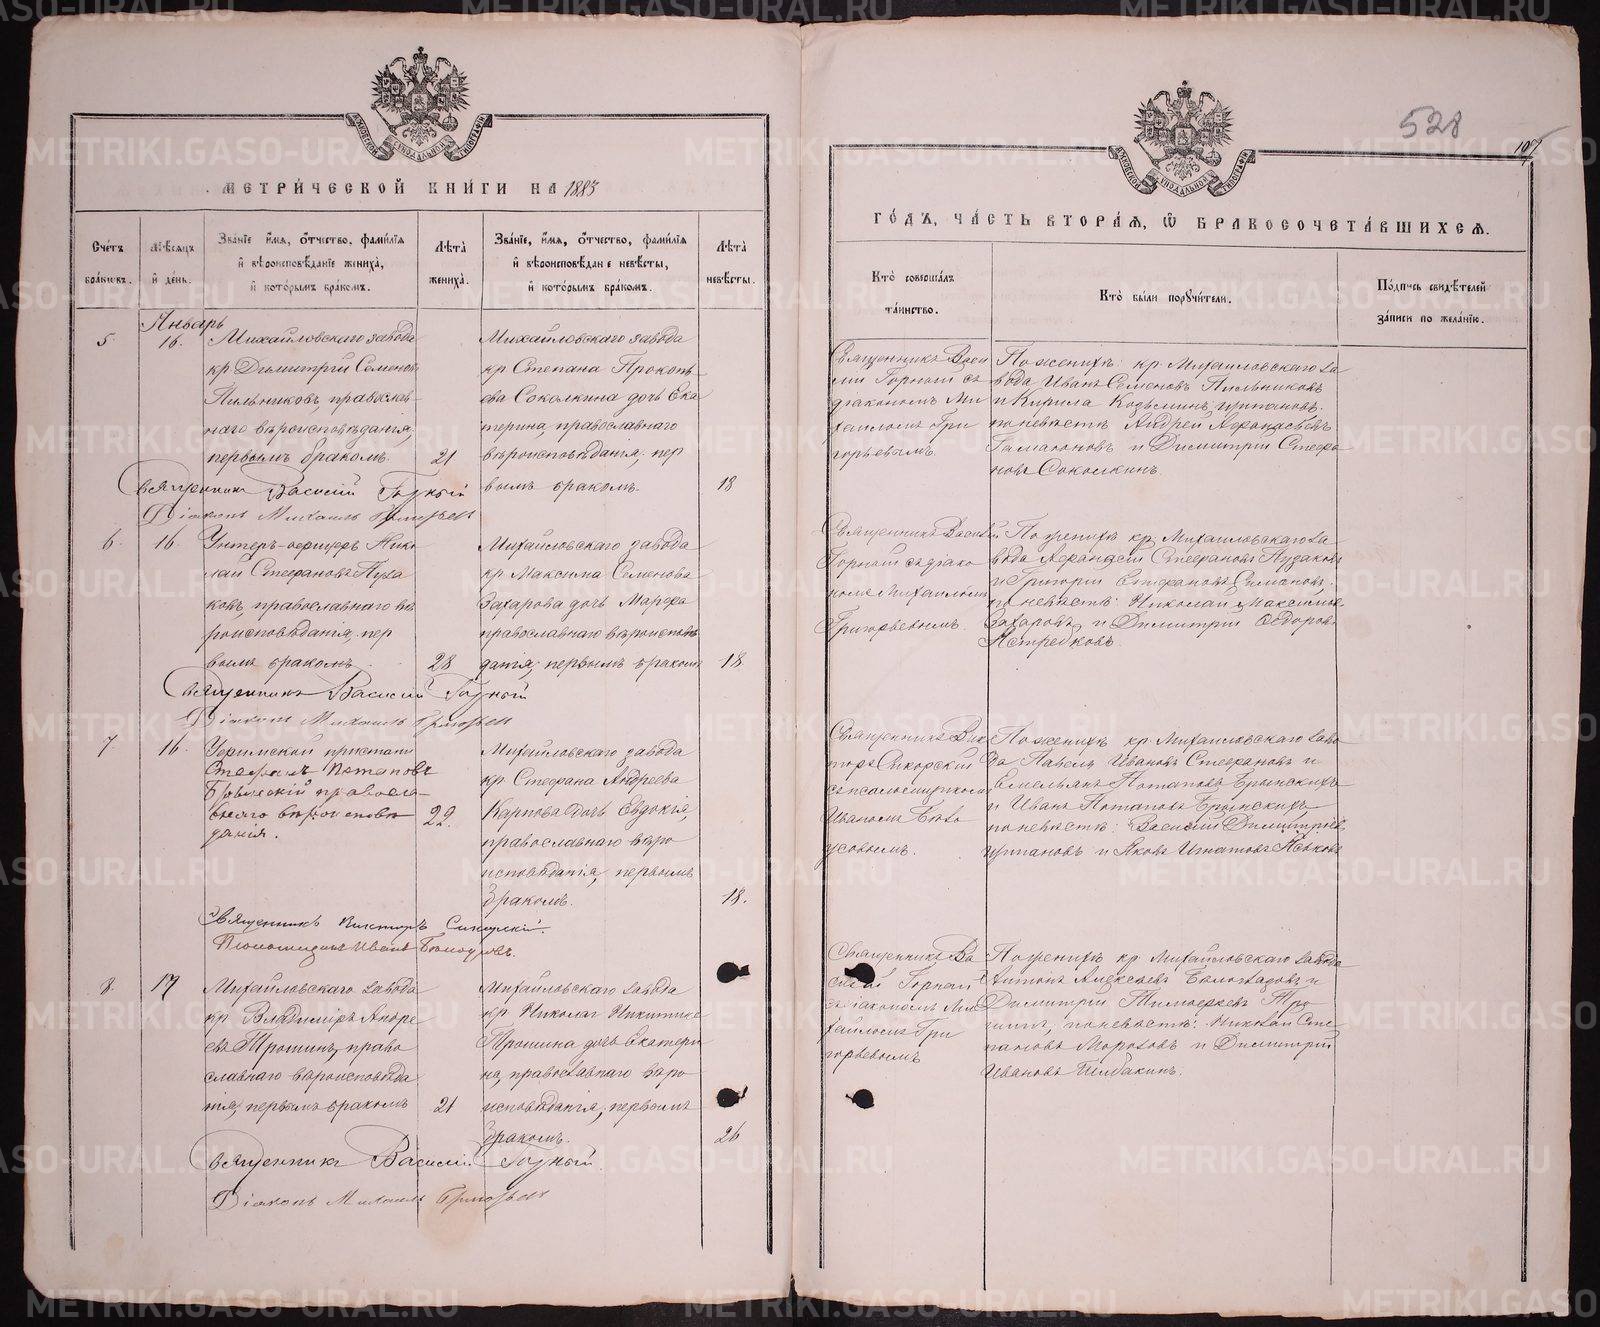 МЕТРИ́ЧЕСКОЙ КНИ́ГИ НА 1883
Сче́тъ бра́ковъ.
Мѣ́сяцъ и҆ де́нь.
Зва́нїе и҆́мя, ѻ҆́тчество, фами́лїя
и҆ вѣроисповѣ́данїе жениха̀,
и҆ кото́рымъ бра́комъ.
Лѣ́та̀ жениха̀.
Зва́нїе, и҆́мя, ѻ҆́тчество, фами́лїя
и҆ вѣроисповѣ́данїе невѣ́сты,
и҆ кото́рымъ бра́комъ.
Лѣ́та̀ невѣ́сты.
Январь
5 16. Михайловскаго завода
кр Димитрій Семеновъ
Пильниковъ, православ-
наго вѣроисповѣданія,
первымъ бракомъ. 21
Михайловскаго завода
кр Степана Прокопь-
ева Соколкина дочь Ека
терина, православнаго
вѣроисповѣданія, пер
вымъ бракомъ. 18
Священникъ Василій Горный
Діаконъ Михаилъ Григорьевъ
6. 16. Унтеръ-офицеръ Нико
лай Стефановъ
православнаго вѣ
роисповѣданія, пер
вымъ бракомъ. 28
Михайловскаго завода
кр Максима Семенова
Захарова дочь Марфа
православнаго вѣроисповѣ
данія, первымъ бракомъ 18.
Священникъ Василій Горный
Діаконъ Михаилъ Григорьевъ
7. 16. Уфимской пристани
Стефанъ Потаповъ
правосла-
внаго вѣроисповѣ
данія. 22.
Михайловскаго завода
кр Стефана Андреева
Карпова дочь Евдокія,
православнаго вѣро
исповѣданія, первымъ
бракомъ. 18.
Священникъ Викторъ Сикорскій.
Псаломщикъ Иванъ
8. 17 Михайловскаго завода
кр Владиміръ Андре
евъ Трошинъ, право
славнаго вѣроисповѣда
нія, первымъ бракомъ 21
Михайловскаго завода
кр Николая Никитина
Трошина дочь Екатери
на, православнаго вѣро
исповѣданія, первымъ
бракомъ. 26
Священникъ Василій Горный.
Діаконъ Михаилъ Григорьевъ
528
107
ГО́ДЪ, ЧА́СТЬ ВТОРА́Я, Ѡ҆ БРАКОСОЧЕТА́ВШИХСЯ.
Кто̀ соверша́лъ
та́инство.
Кто̀ бы́ли порꙋчи́тели.
По́дпись свидѣ́телей
за́писи по жела́нїю.
Священникъ Васи
лій Горный съ
діакономъ Ми
хаиломъ Гри
горьевымъ.
По женихѣ: кр. Михайловскаго за
вода Иванъ Семеновъ Пильниковъ
и Кирила Козьминъ Щипановъ.
по невѣстѣ Андрей Афанасьевъ
Гамаюновъ и Димитрій Стефа
новъ Соколкинъ.
Священникъ Василій
Горный съ діако
номъ Михаиломъ
Григорьевымъ.
По женихѣ кр. Михайловскаго за
вода Афанасій Стефановъ
и Григорій Стефановъ
по невѣстѣ: Николай Максимовъ
Захаровъ и Димитрій Ѳедоровъ
Ястребковъ.
Священникъ Вик
торъ Сикорскій
съ псаломщикомъ
Иваномъ
По женихѣ кр. Михайловскаго заво
да Павелъ Ивановъ Стефановъ и
Емельянъ Потаповъ Брынскихъ
и Иванъ Потаповъ Брынскихъ
по невѣстѣ: Василій Димитріевъ
Щипановъ и Яковъ Игнатовъ
Священникъ Ва
силій Горный
съ діакономъ Ми
хаиломъ Гри
горьевымъ
По женихѣ кр. Михайловскаго завода
Антонъ Алексѣевъ и
Димитрій Тимофеевъ Тро
шинъ, по невѣстѣ: Николай Сте
пановъ Морозовъ и Димитрій
Ивановъ Шибакинъ.
METRIKI.GASO-URAL.RU